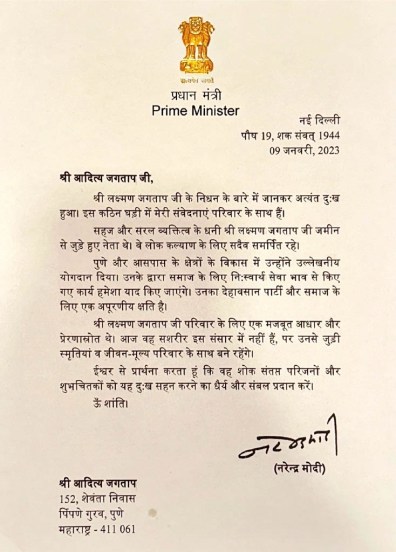 सत्यमेव जयते
प्रधान मंत्री
Prime Minister
नई दिल्ली
पौष 19, शक संवत् 1944
09 जनवरी, 2023
श्री आदित्य जगताप जी,
श्री लक्ष्मण जगताप जी के निधन के बारे में जानकर अत्यंत दु:ख
हुआ। इस कठिन घड़ी में मेरी संवेदनाएं परिवार के साथ हैं।
सहज और सरल व्यक्तित्व के धनी श्री लक्ष्मण जगताप जी जमीन
से जुड़े हुए नेता थे। वे लोक कल्याण के लिए सदैव समर्पित रहे।
पुणे और आसपास के क्षेत्रों के विकास में उन्होंने उल्लेखनीय
योगदान दिया। उनके द्वारा समाज के लिए नि:स्वार्थ सेवा भाव से किए
गए कार्य हमेशा याद किए जाएंगे। उनका देहावसान पार्टी और समाज के
लिए एक अपूरणीय क्षति है।
श्री लक्ष्मण जगताप जी परिवार के लिए एक मजबूत आधार और
प्रेरणास्रोत थे। आज वह सशरीर इस संसार में नहीं हैं, पर उनसे जुड़ी
स्मृतियां व जीवन-मूल्य परिवार के साथ बने रहेंगे।
ईश्वर से प्रार्थना करता हूं कि वह शोक संतप्त परिजनों और
शुभचिंतकों को यह दु:ख सहन करने का धैर्य और संबल प्रदान करें।
ऊँ शांति।
(नरेन्द्र मोदी)
श्री आदित्य जगताप
152, शेवंता निवास
पिंपणे गुरव, पुणे
महाराष्ट्र - 411 061